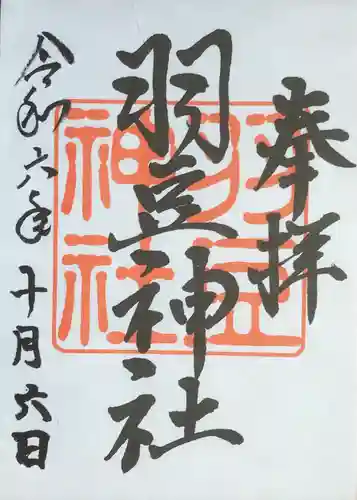 奉拝
羽豆神社
令和六年十月六日
羽豆
神社